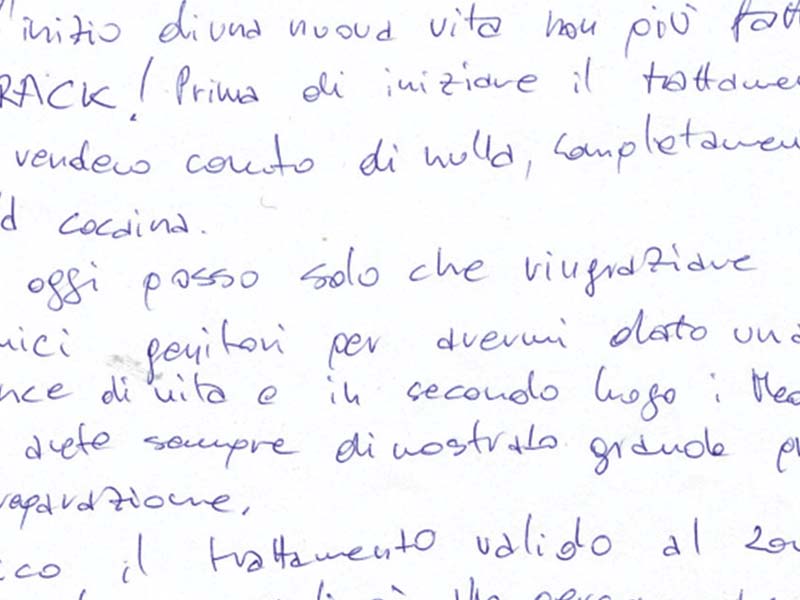 'inizio di una nuova vita non più fatt
RACK! Prima di iniziare il trattamen
rendevo conto di nulla, completamen
d cocaina.
oggi posso solo che ringraziare
miei genitori per avermi dato una
nce di vita e in secondo luogo i Med
avete sempre dimostrato grande pr
reparazione,
ico il trattamento valido al 200